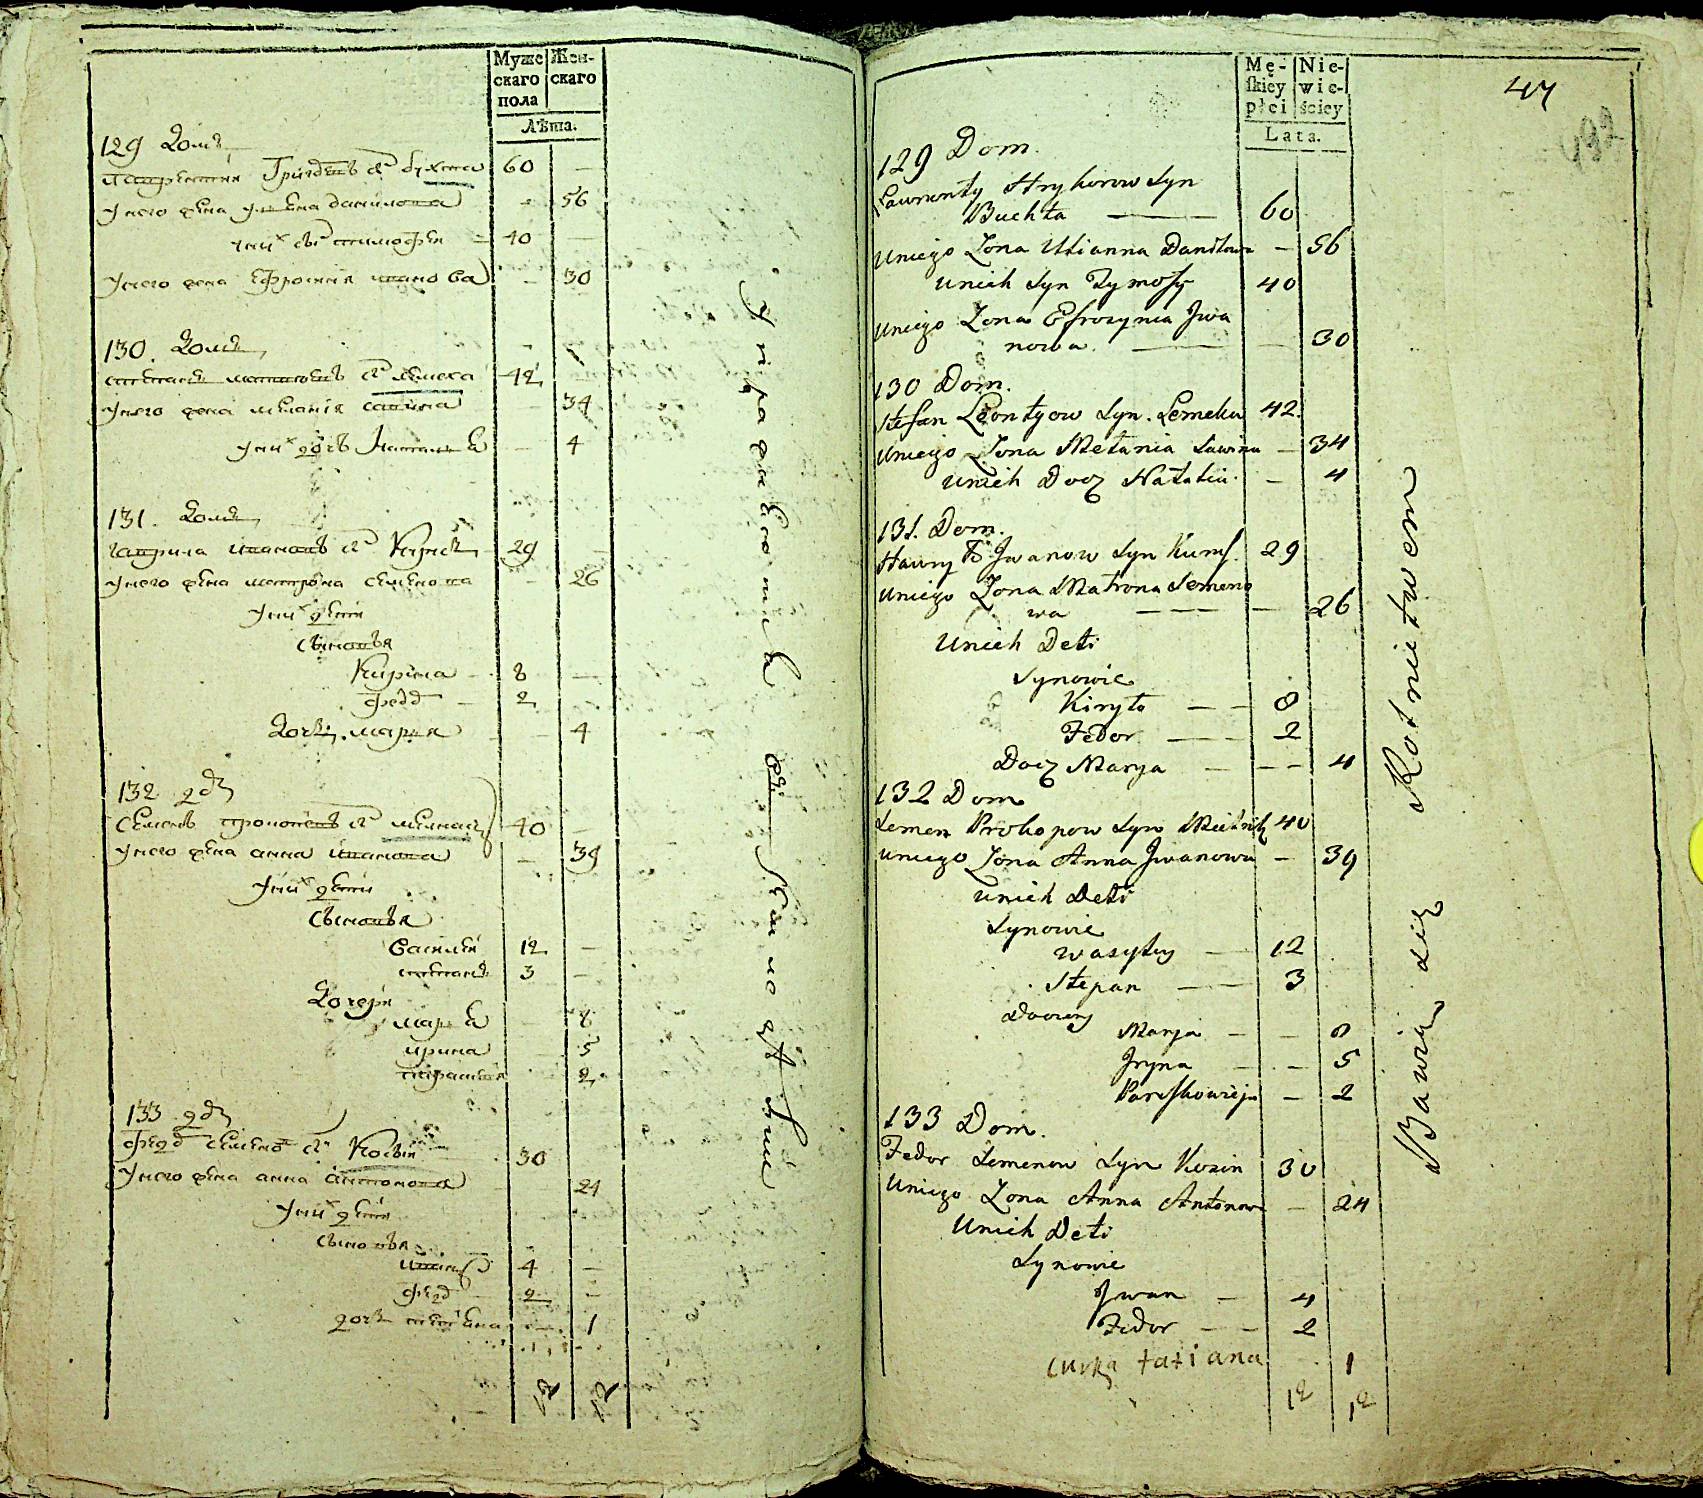 Муже
скаго
пола
Жен-
скаго
Лѣта.
129 Домъ
Лаврентии Григоревъ сн Бухта 60 —
у него жена улена данилова - 56
у них снъ тимофеи 40 —
у него жена Ефросиния иванова - 30
130. Домъ
степанъ леонтьевъ сн лемеха 42
у него жена мелания савина 34
у них дочь Наталья — 4
131. Домъ
гаврила ивановъ сн Кумсъ 29
у него жена матрона семенова 26
у них дети
Сыновья
Кирила 8 —
Федор 2
Дочь. мария 4
132 дом
Семенъ прокоповъ сн мелникъ 40 —
у него жена анна иванова — 39
у них дети
Сыновья
Василеи 12 —
степанъ 3 —
Дочери
марья 8
ирина 5
парасковия 2
133 дом
Федор семенов сн Козин 30
у него жена анна антонова 24
у них дети
Сыновья
иванъ 4 —
Федор 2 —
дочь татияна 1
12 12
Упражняются в хлебопашестве
Mę-
skiey
płci
Nie-
wie-
ściey
Lata.
47
129 Dom.
Lawrenty Hryhorow Syn
Buchta — 60
Uniego Zona Ulianna Daniłowa — 56
Unich Syn Tymofy 40
Uniego Zona Efrozynia Jwa
nowa. — — 30
130 Dom.
Stefan Leontyow Syn. Lemeha 42.
Uniego Zona Mełania Sawina — 34
Unich Docz Natalia. — 4
131. Dom.
Hawryło Jwanow Syn Kums. 29
Uniego Zona Matrona Semeno
wa — — 26
Unich Deti
Synowie
Kiryło — — 8
Fedor — — 2
Docz Marya — — — 4
132 Dom
Semen Prokopow Syn Mielnik 40
Uniego Zona Anna Jwanowa — 39
Unich Deti
Synowie
Wasyly — 12
Stepan — — 3
Doczery
Marja — — 8
Jryna — — 5
Paraskowieja — 2
133 Dom.
Fedor Semenow Syn Kozin 30
Uniego Zona Anna Antonow — 24
Unich Deti
Synowie
Jwan — 4
Fedor — — 2
curka tatiana 1
12 12
Bawią się Rolnictwem